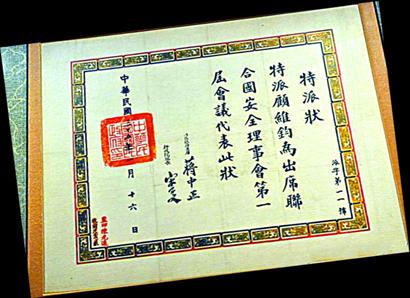 特派狀
特派顧維鈞為出席聯
合國安全理事會第一
屆會議代表此狀
蔣中正
宋子文
中華民國
月十六日
派字第一一號